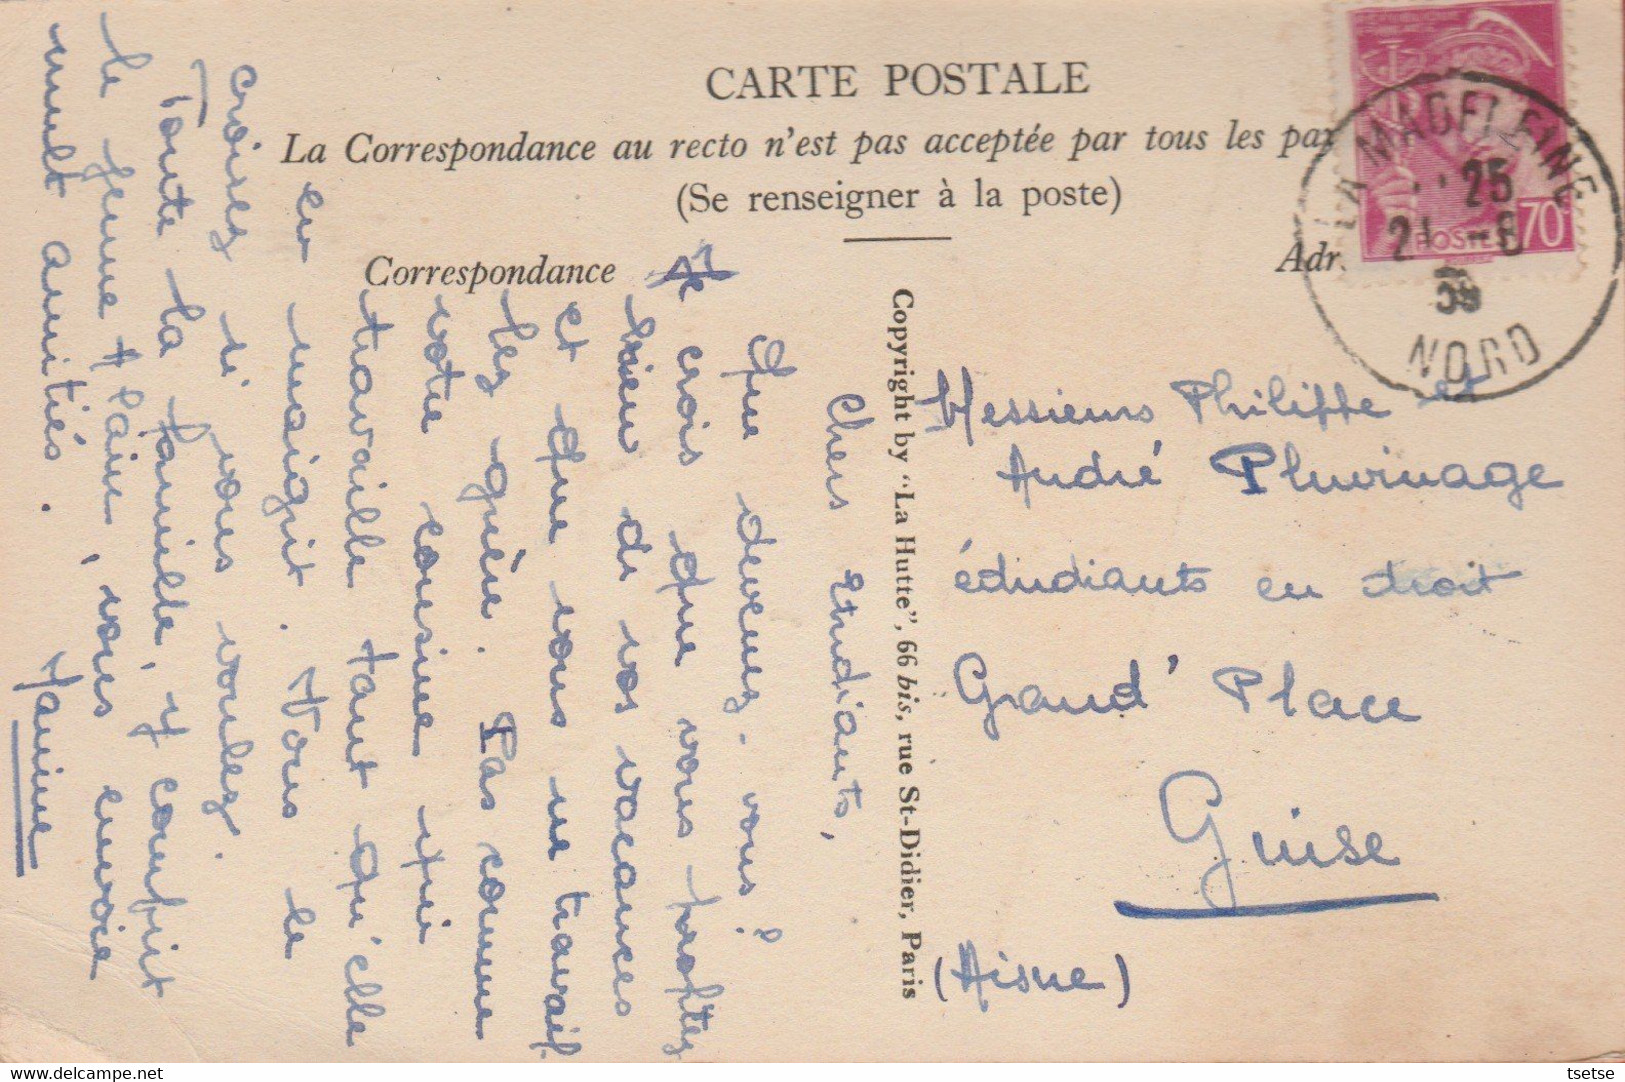 CARTE POSTALE
La Correspondance au recto n'est pas acceptée par tous les pa
(Se renseigner à la poste)
Correspondance
Adr
LA MADELEINE
25
21 -8
39
NORD
POSTES 70
Chers Etudiants,
Que devenez-vous?
Je crois que vous profitez
bien de vos vacances
et que vous ne travail
lez guère. Pas comme
votre cousine qui
travaille tant qu'elle
en maigrit. Vous le
croirez si vous voulez.
Toute la famille, y compris
le jeune Alain, vous envoie
mult amitiés.
Janine
Copyright by "La Hutte", 66 bis, rue St-Didier, Paris
Messieurs Philippe et
André Pluvinage
étudiants en droit
Grand' Place
Guise
(Aisne)
delcampe.net
tsetse